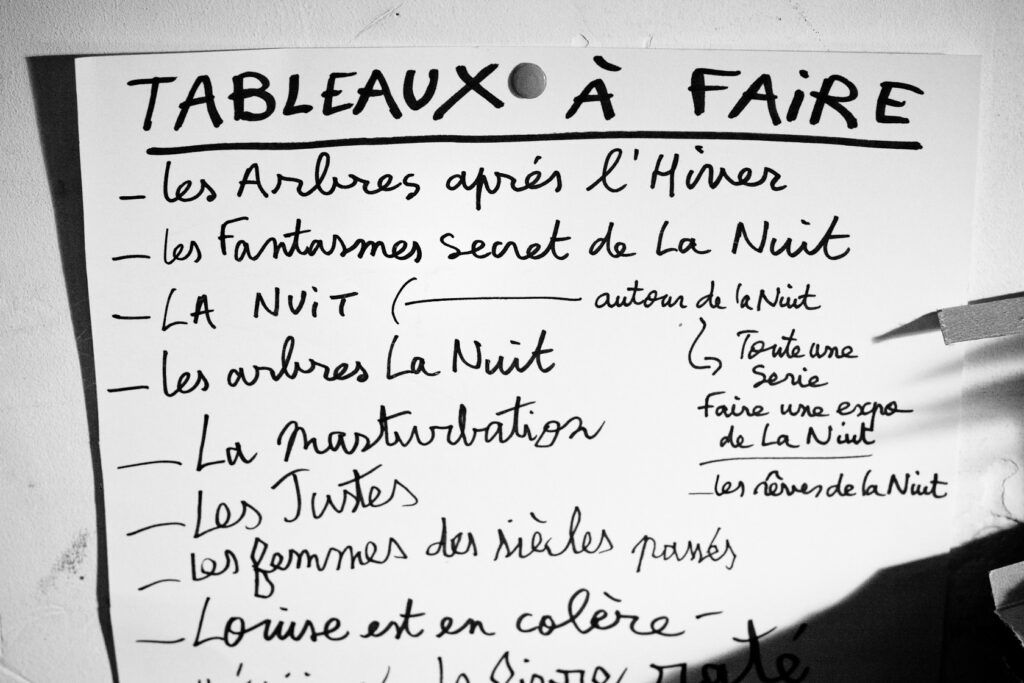 TABLEAUX À FAIRE
- les Arbres aprés l'Hiver
- les Fantasmes secret de La Nuit
- LA NUiT (— autour de la Nuit
Toute une
Serie
- les arbres La Nuit
Faire une expo
de La Nuit
- La masturbation
- Les Justes
- les rêves de la Nuit
- les femmes des siècles passés
- Louise est en colère -
raté